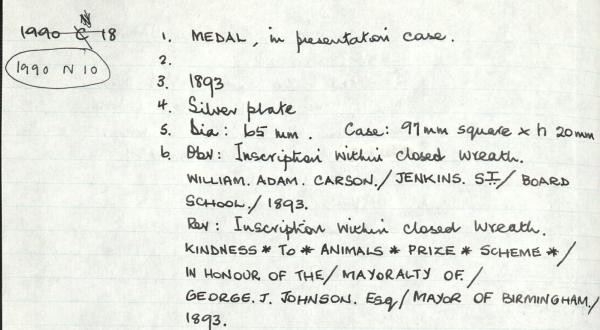 N
1990 C 18
1990 N 10
1. MEDAL, in presentation case.
2.
3. 1893
4. Silver plate
5. Dia: 65 mm. Case: 97mm square x h 20mm
6. Obv: Inscription within closed wreath.
WILLIAM. ADAM. CARSON./ JENKINS. ST/ BOARD
SCHOOL./ 1893.
Rev: Inscription within closed wreath.
KINDNESS * TO * ANIMALS * PRIZE * SCHEME */
IN HONOUR OF THE/ MAYORALTY OF./
GEORGE. J. JOHNSON. Esq/ MAYOR OF BIRMINGHAM./
1893.